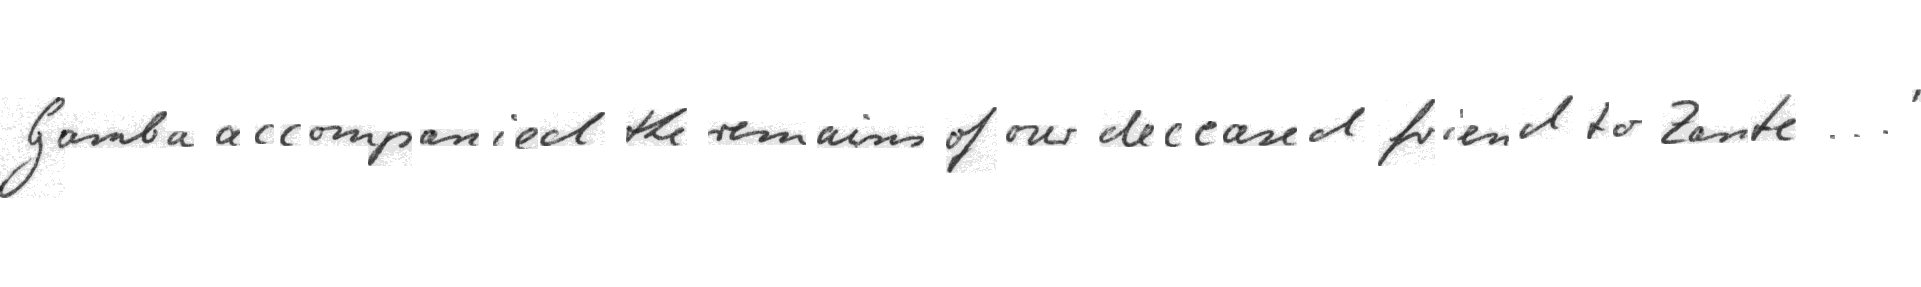 Gamba accompanied the remains of our deceased friend to Zante ... '